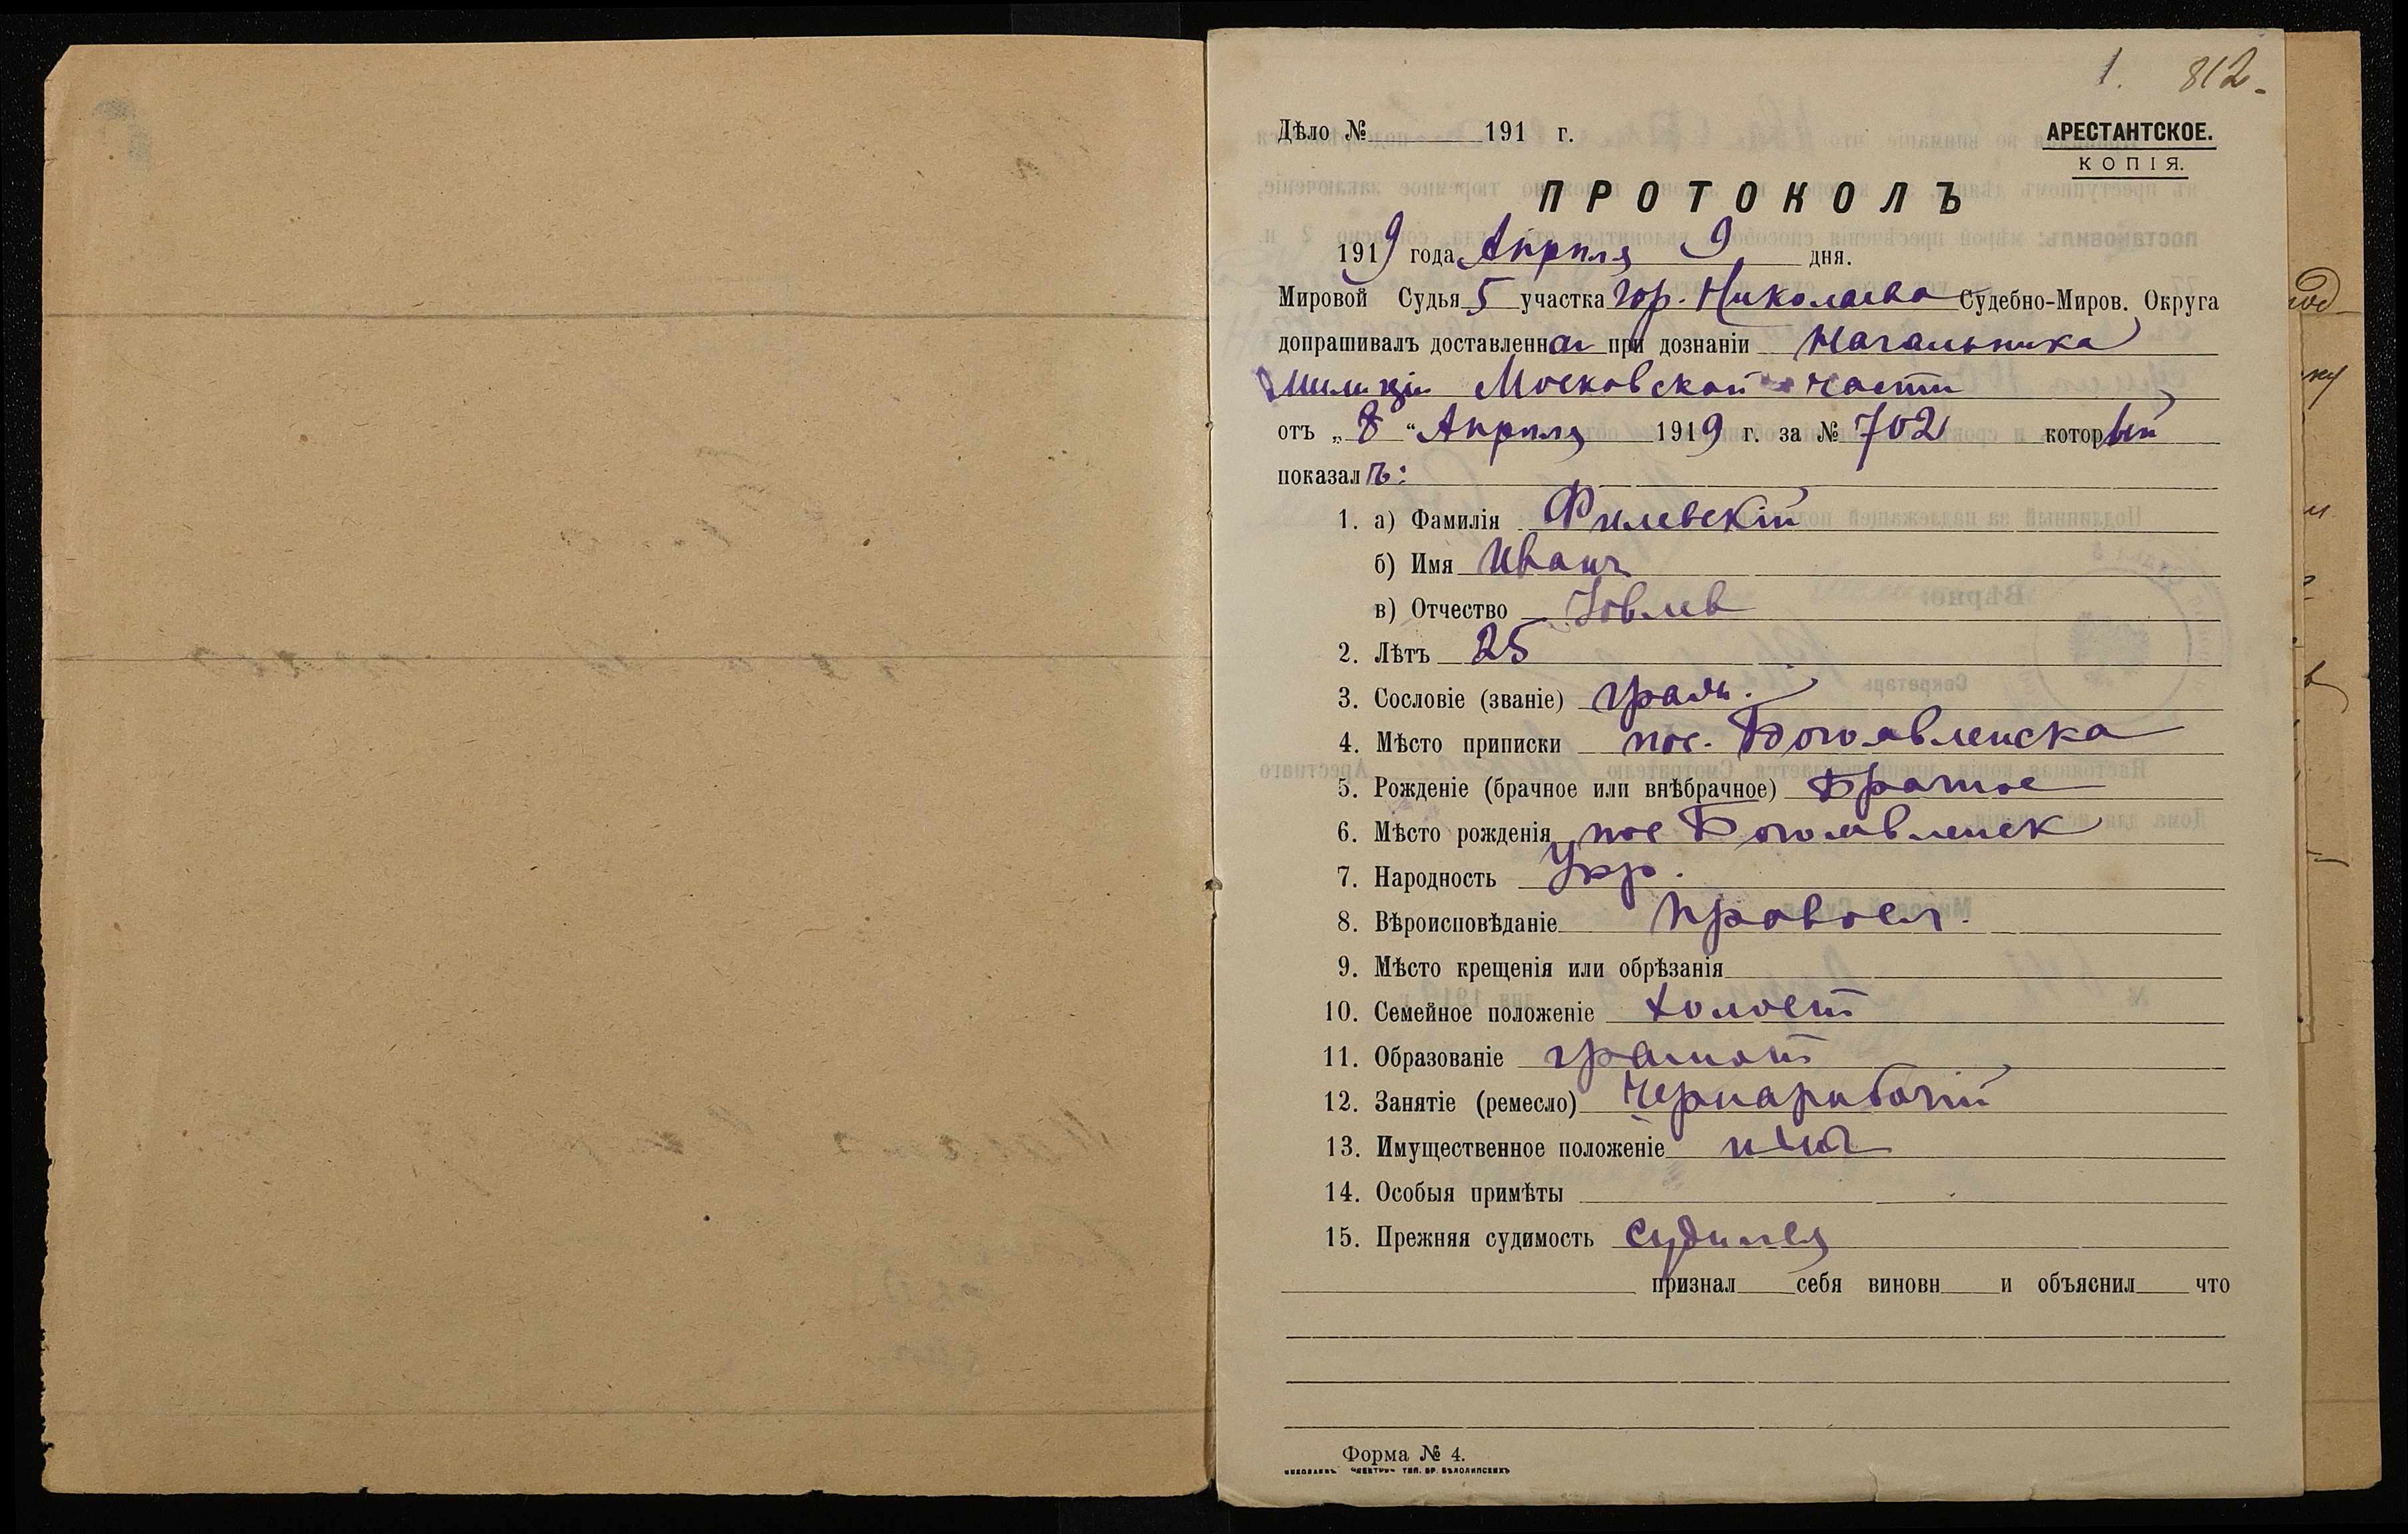 1. 812.
Дѣло № 191 г. АРЕСТАНТСКОЕ.
КОПІЯ.
ПРОТОКОЛЪ
1919 года Апрѣля 9 дня.
Мировой Судья 5 участка гор. Николаева Судебно-Миров. Округа
допрашивалъ доставленна при дознаніи Начальника
Милиціи Московской части
отъ „8“ Апрѣля 1919 г. за № 702 который
показалъ:
1. а) Фамилія Филевскій
б) Имя Иванъ
в) Отчество Іовлев
2. Лѣтъ 25
3. Сословіе (званіе) гражд.
4. Мѣсто приписки пос. Богоявленска
5. Рожденіе (брачное или внѣбрачное) Брачное
6. Мѣсто рожденія пос Богоявленск
7. Народность Укр.
8. Вѣроисповѣданіе Правосл.
9. Мѣсто крещенія или обрѣзанія
10. Семейное положеніе холост
11. Образованіе грамот
12. Занятіе (ремесло) Чернарабочій
13. Имущественное положеніе нѣтъ
14. Особыя примѣты
15. Прежняя судимость судился
признал себя виновн и объяснил что
Форма № 4.